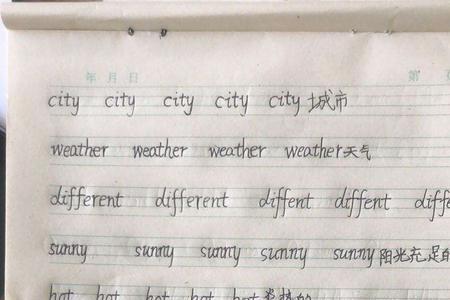 年 月 日 第
city city city city city 城市
weather weather weather weather 天气
different different diffent diffent diffe
sunny sunny sunny sunny sunny 阳光充足的
hot hot hot hot hot